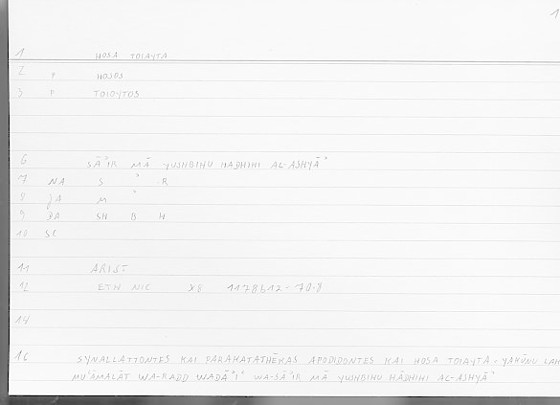 1
1 HOSA TOIAYTA
2 F HOIOS
3 F TOIOYTOS
6 SĀʾIR MĀ YUSHBIHU HĀDHIHI AL-ASHYĀʾ
7 NA S ʾ R
8 JA M ʾ
9 JA SH B H
10 SE
11 ARIST
12 ETH NIC X8 1178b12-
14
16 SYNALLATTONTES KAI PARAKATATHĒKAS APODIDONTES KAI HOSA TOIAYTA. YAKŪNU LAH
MUʿĀMALĀT WA-RADD WADĀʾIʿ WA-SĀʾIR MĀ YUSHBIHU HĀDHIHI AL-ASHYĀʾ